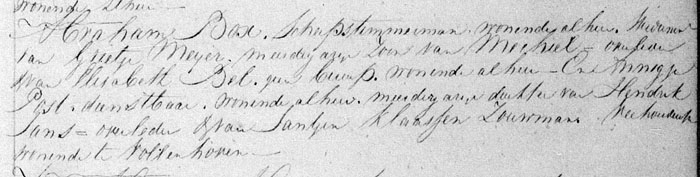 wonende alhier
Abraham Bos. Scheepstimmerman. wonende alhier. Weduwnaar
van Grietje Meyer. meerderjarige Zoon van Mechiel = overleden
& van Elisabeth Bel. wonende alhier - En Annigje
Post. dienstbaar. wonende alhier. meerderjarige dochter van Hendrik
Jans = overleden & van Jantjen Klaassen Zouwman
wonende te Vollenhoven